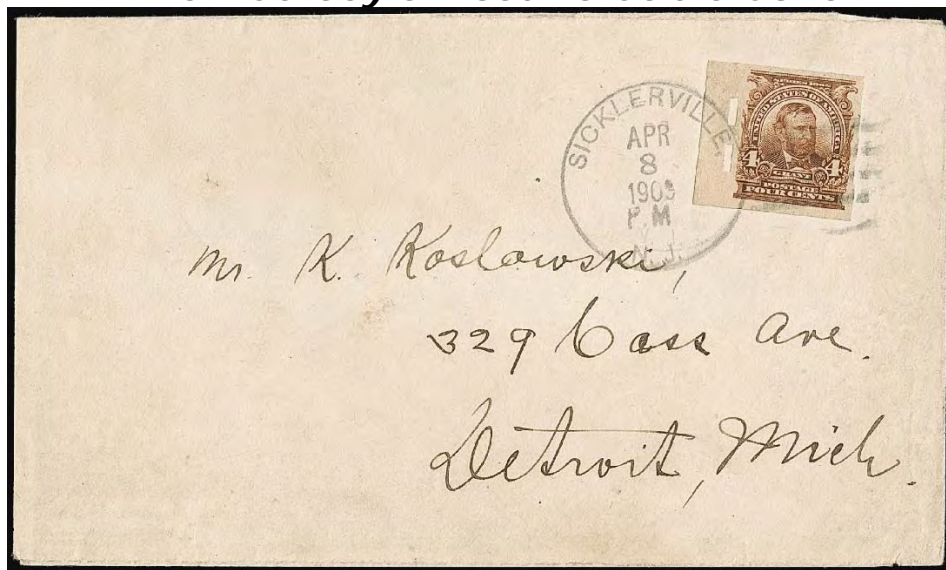 SICKLERVILLE
APR
8
1909
P.M
N.J.
UNITED STATES OF AMERICA
4 4
GRANT
POSTAGE
FOUR CENTS
Mr. K. Koslowski,
329 Cass Ave.
Detroit, Mich.